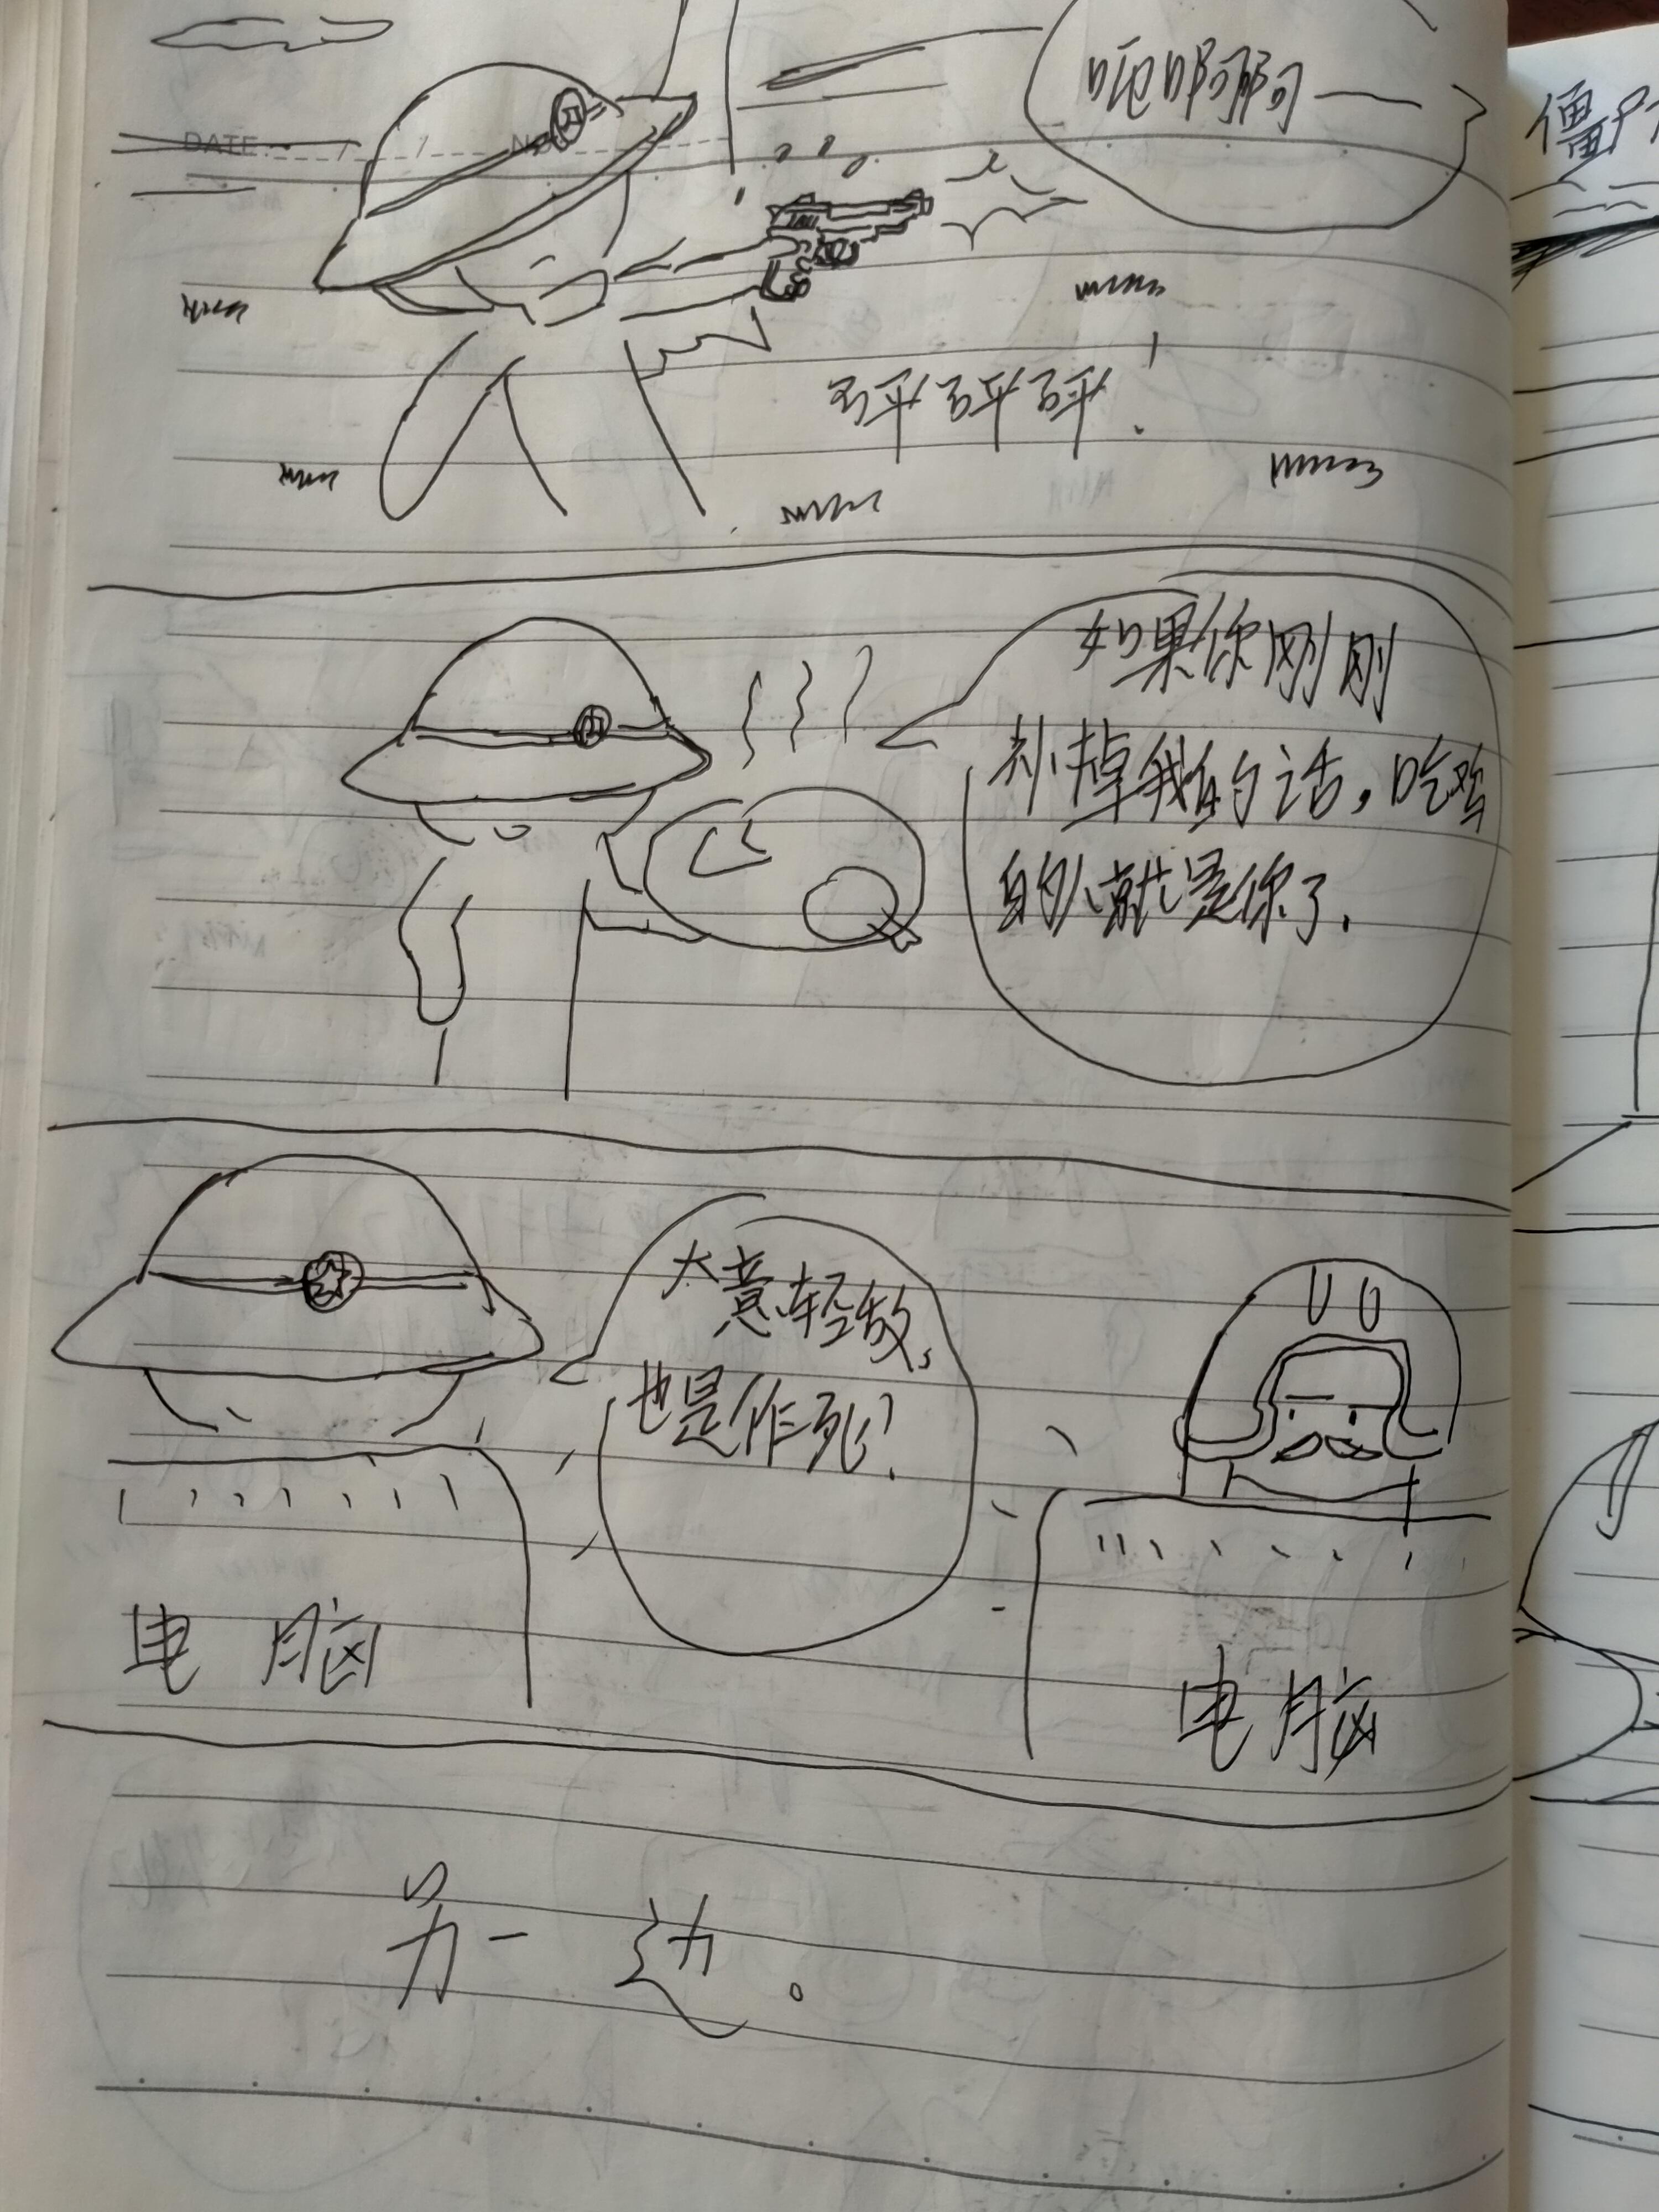 DATE / /
啊啊——
砰砰砰！
如果你刚刚
补掉我的话，吃鸡
的就是你了.
大意轻敌，
也是作死！
电脑
电脑
另一边。
僵尸